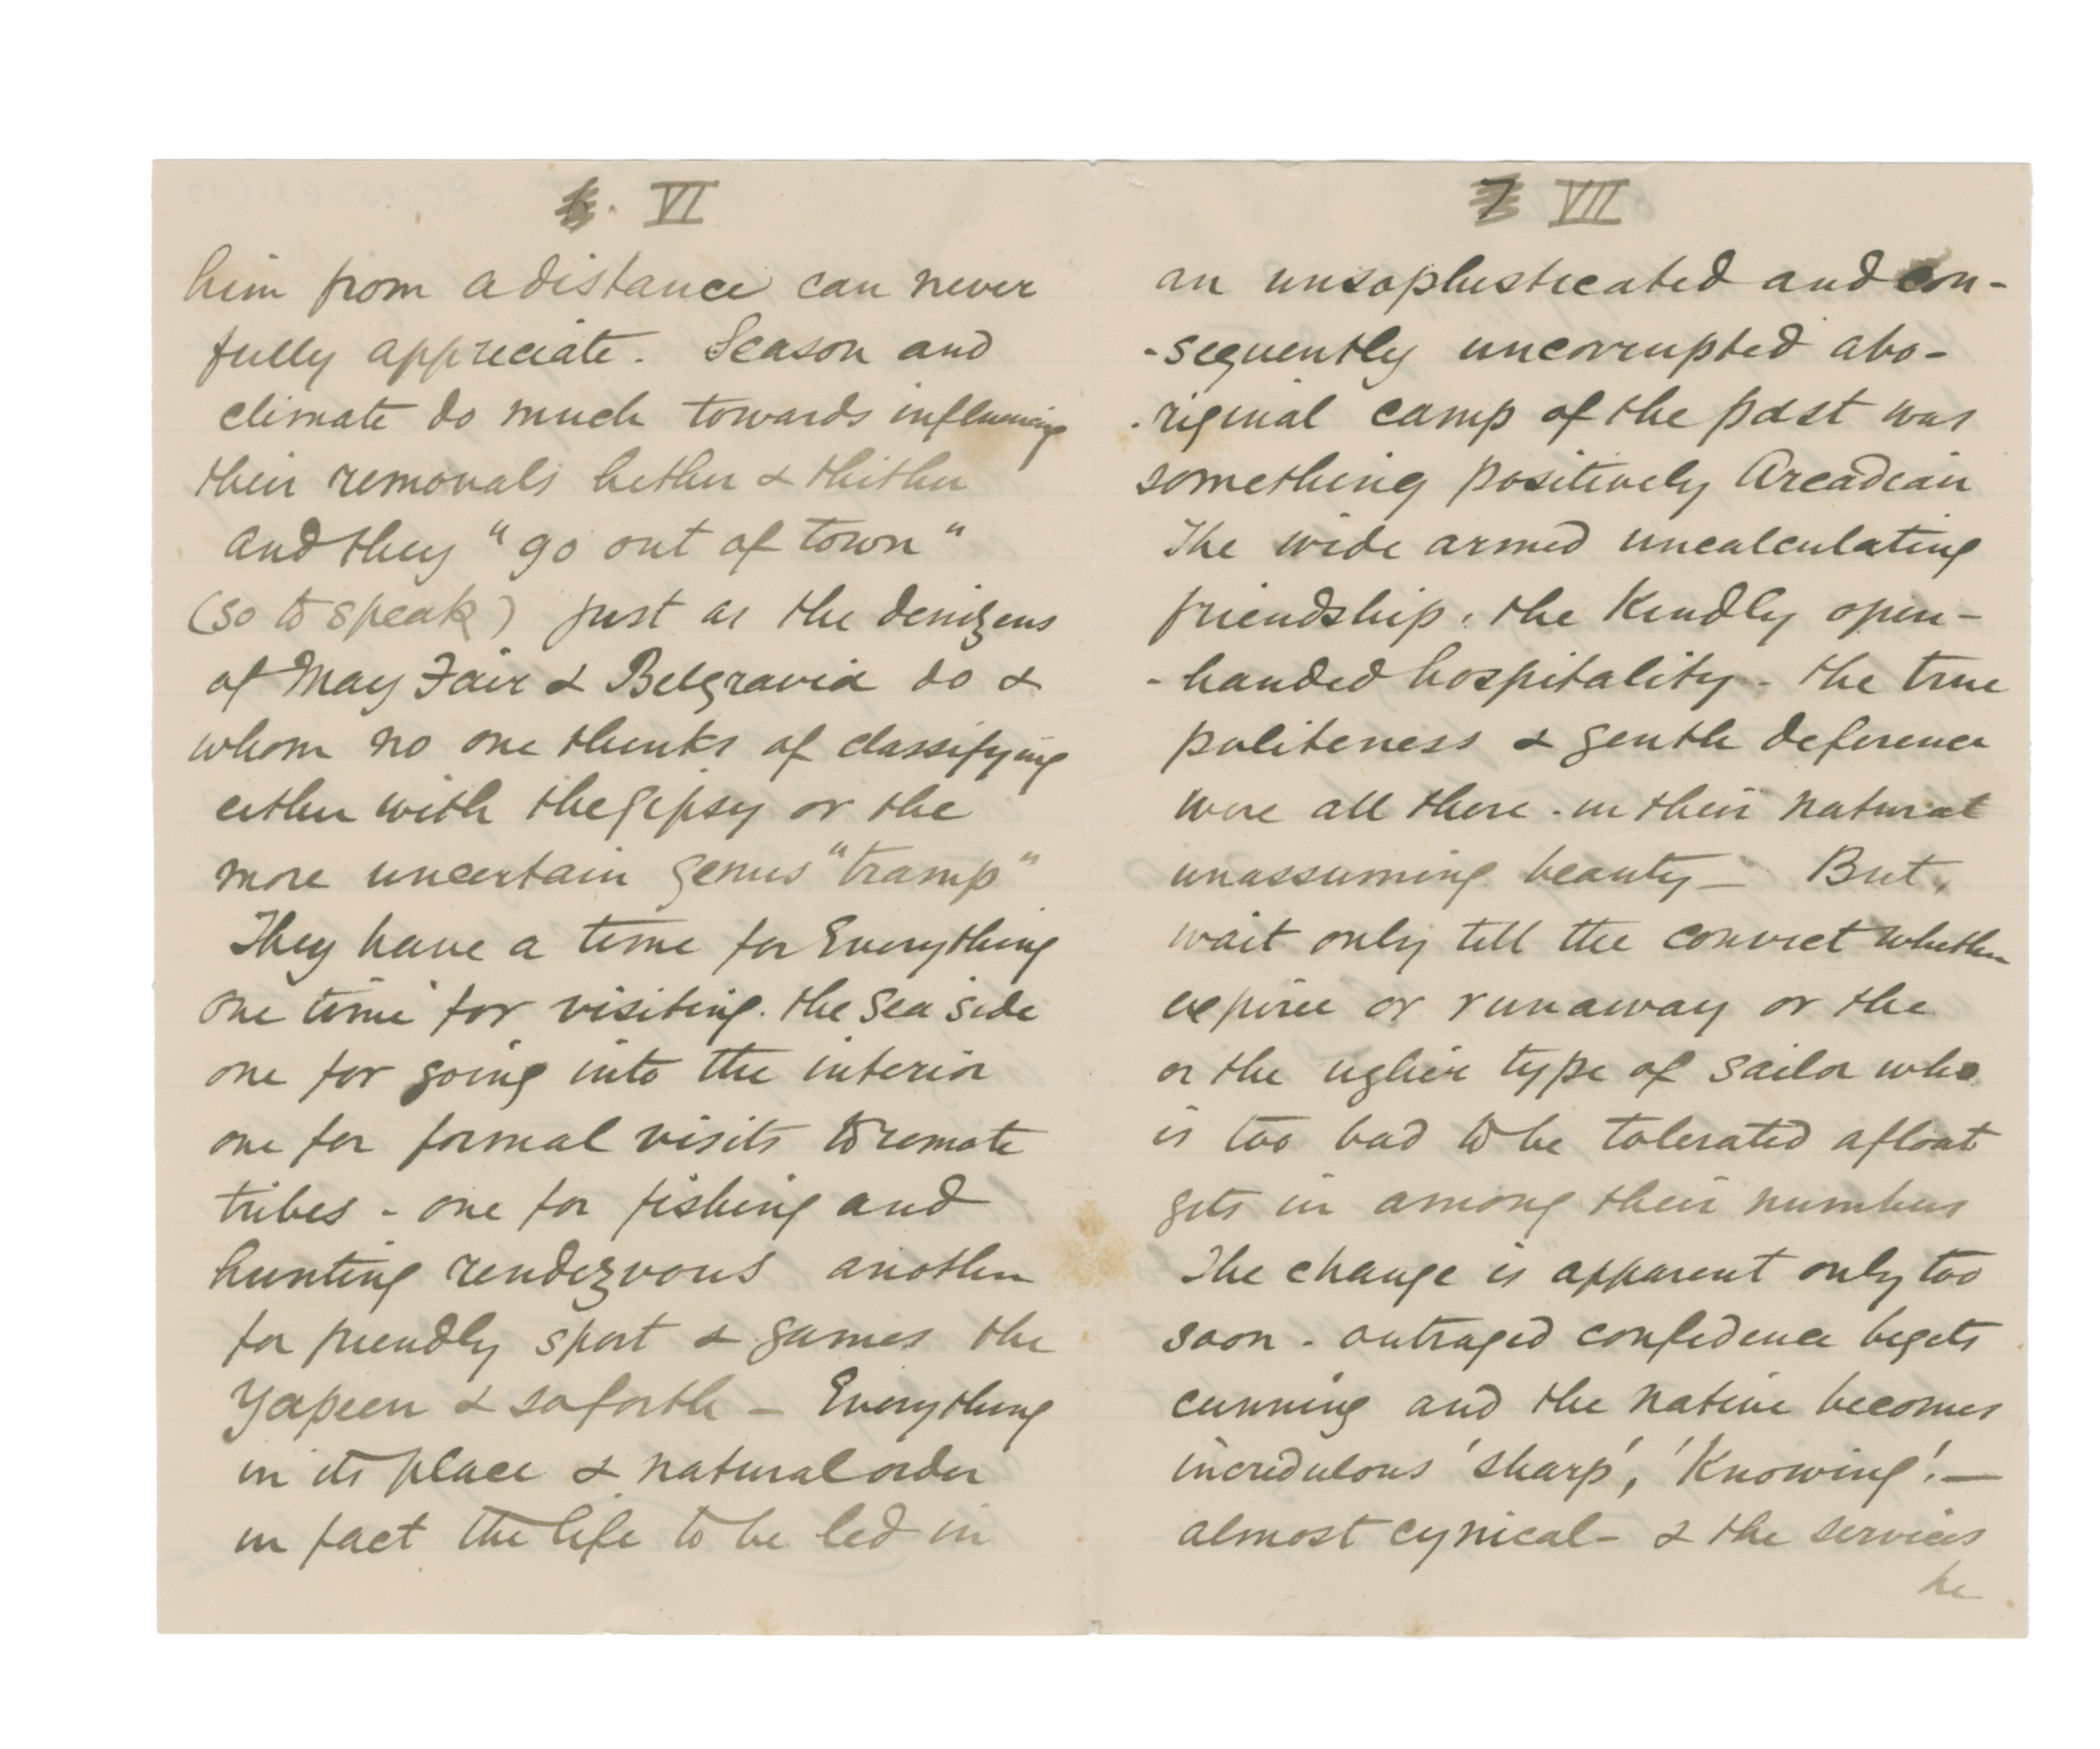 6. VI
him from a distance can never
fully appreciate. Season and
climate do much towards influencing
their removals hither & thither
and they "go out of town"
(so to speak) just as the denizens
of May Fair & Belgravia do &
whom no one thinks of classifying
either with the gipsy or the
more uncertain genus "tramp"
They have a time for Everything
one time for visiting. the sea side
one for going into the interior
one for formal visits to remote
tribes - one for fishing and
hunting rendezvous another
for friendly sport & games the
Yapeen & so forth - Everything
in its place & natural order
in fact the life to be led in
7 VII
an unsophisticated and con-
-sequently uncorrupted abo-
-riginal camp of the past was
something positively Arcadian
The wide armed uncalculating
friendship, the Kindly open-
-handed hospitality - the true
politeness & gentle deference
were all there - in their natural
unassuming beauty - But,
wait only till the convict whether
expiree or runaway or the
or the uglier type of sailor who
is too bad to be tolerated afloat
gets in among their numbers
The change is apparent only too
soon - outraged confidence begets
cunning and the native becomes
incredulous 'sharp', 'Knowing'! —
almost cynical - & the services
he